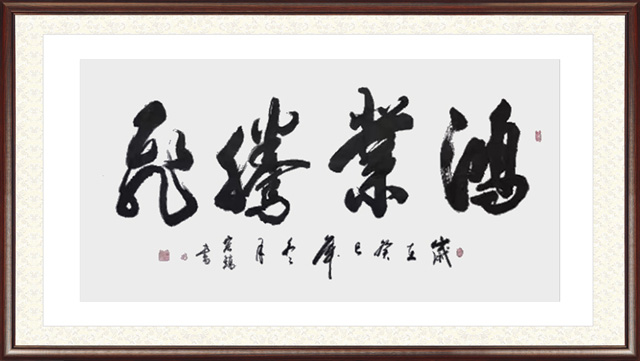 鴻業騰飛
歲在癸巳年冬月 書